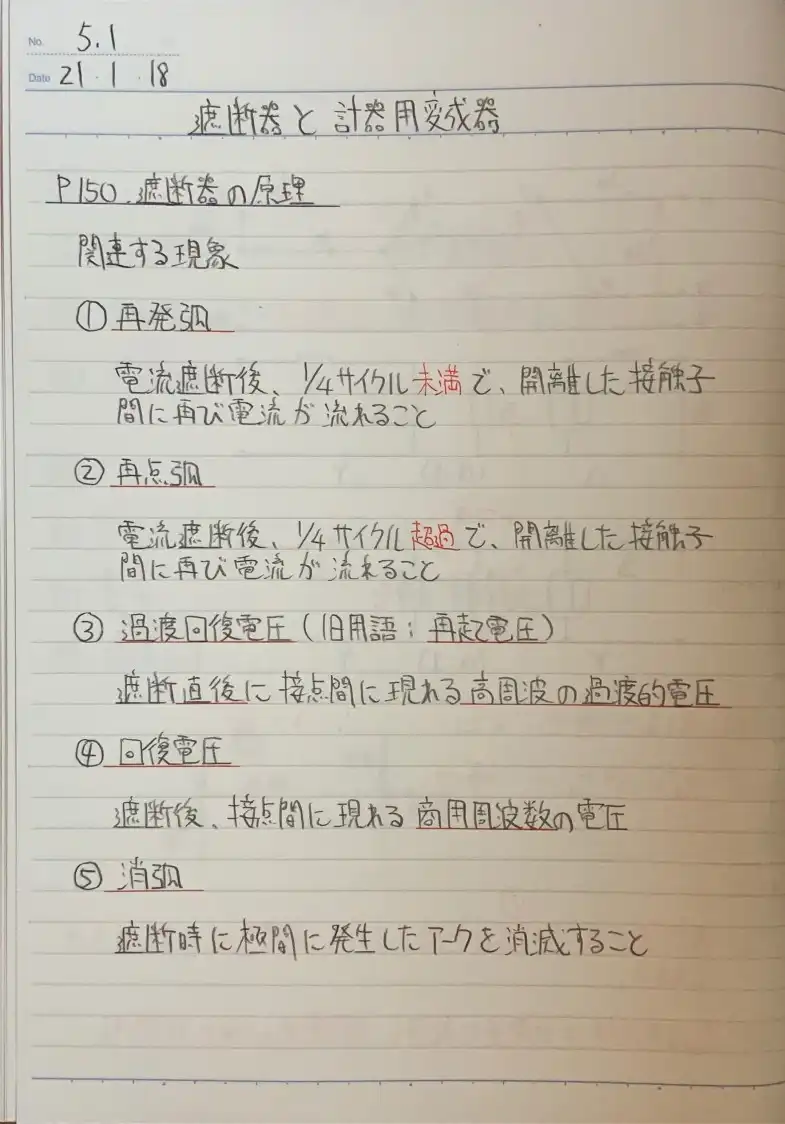 No. 5.1
Date 21・1・18
遮断器と計器用変成器
P150.遮断器の原理
関連する現象
① 再発弧
電流遮断後、1/4サイクル未満で、開離した接触子
間に再び電流が流れること
② 再点弧
電流遮断後、1/4サイクル超過で、開離した接触子
間に再び電流が流れること
③ 過渡回復電圧(旧用語:再起電圧)
遮断直後に接点間に現れる高周波の過渡的電圧
④ 回復電圧
遮断後、接点間に現れる商用周波数の電圧
⑤ 消弧
遮断時に極間に発生したアークを消滅すること